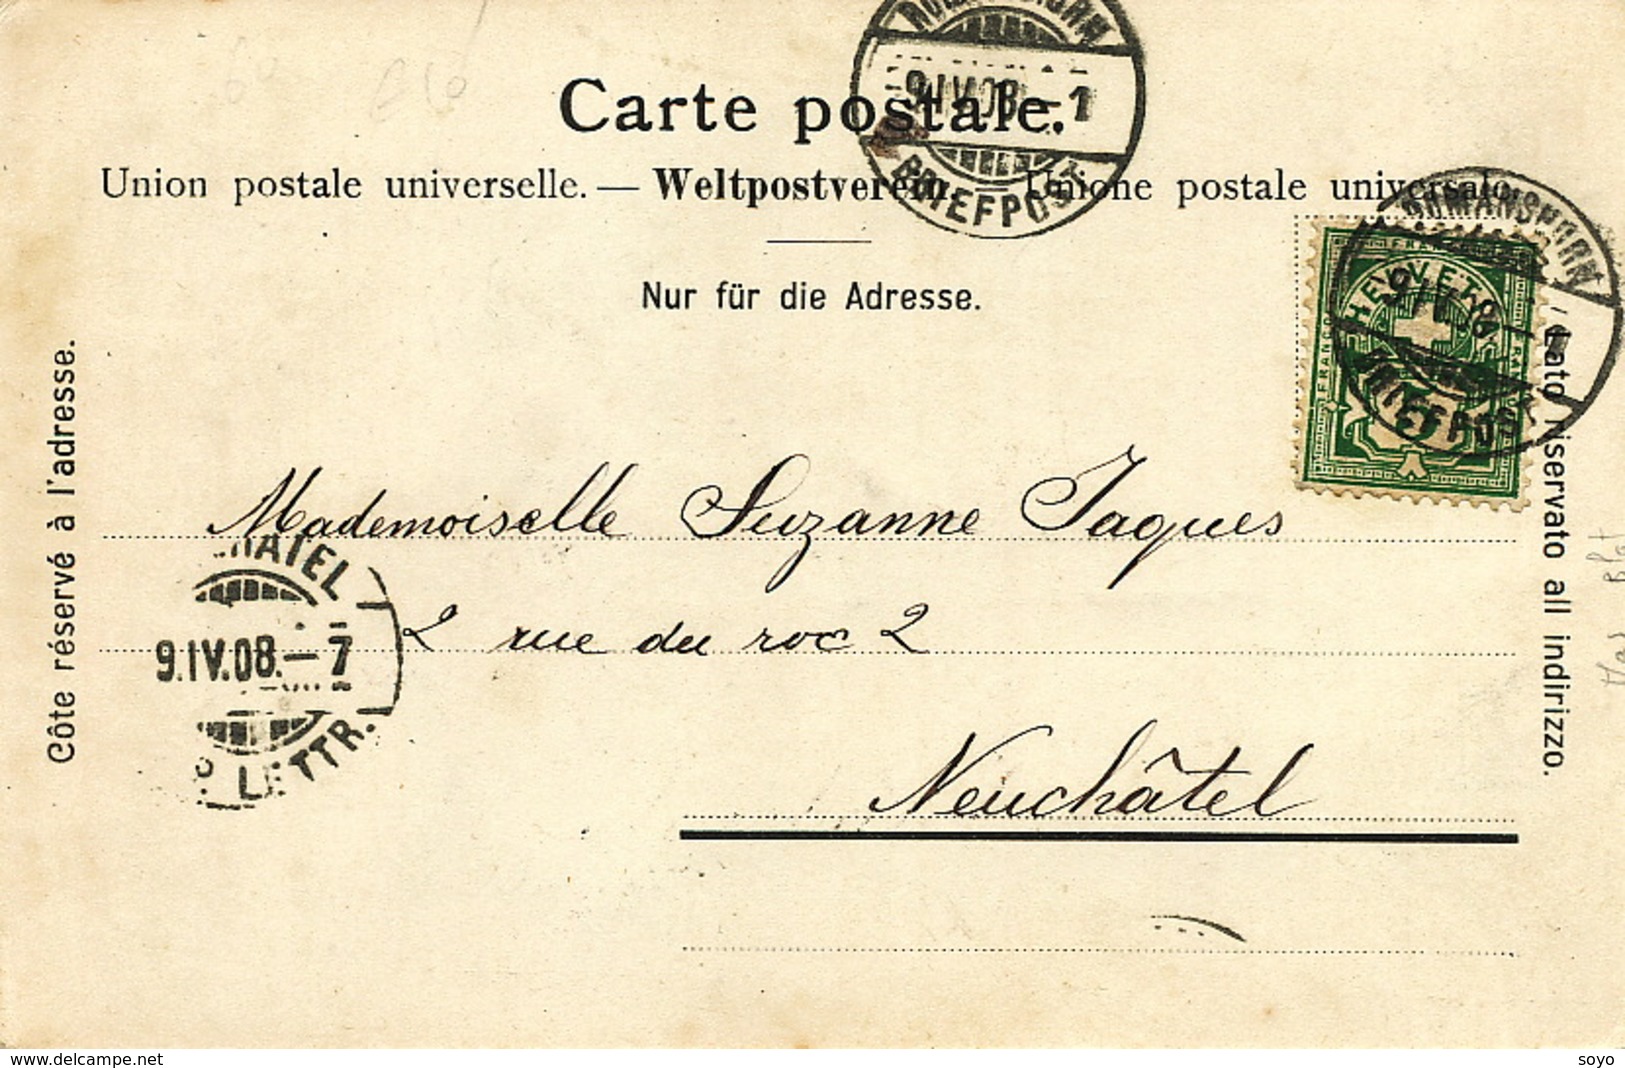 Carte postale.
ROMANSHORN
9.IV.08.–1
BRIEFPOST
Union postale universelle. — Weltpostverein. — Unione postale universale.
ROMANSHORN
9.IV.08.–1
BRIEFPOST
Nur für die Adresse.
FRANCO
HELVETIA
FRANCO
5
Côte réservé à l'adresse.
Lato riservato all indirizzo.
Mademoiselle Suzanne Jaques
2 rue du roc 2
Neuchâtel
HATEL
9.IV.08.–7
LETTR.
www.delcampe.net
soyo